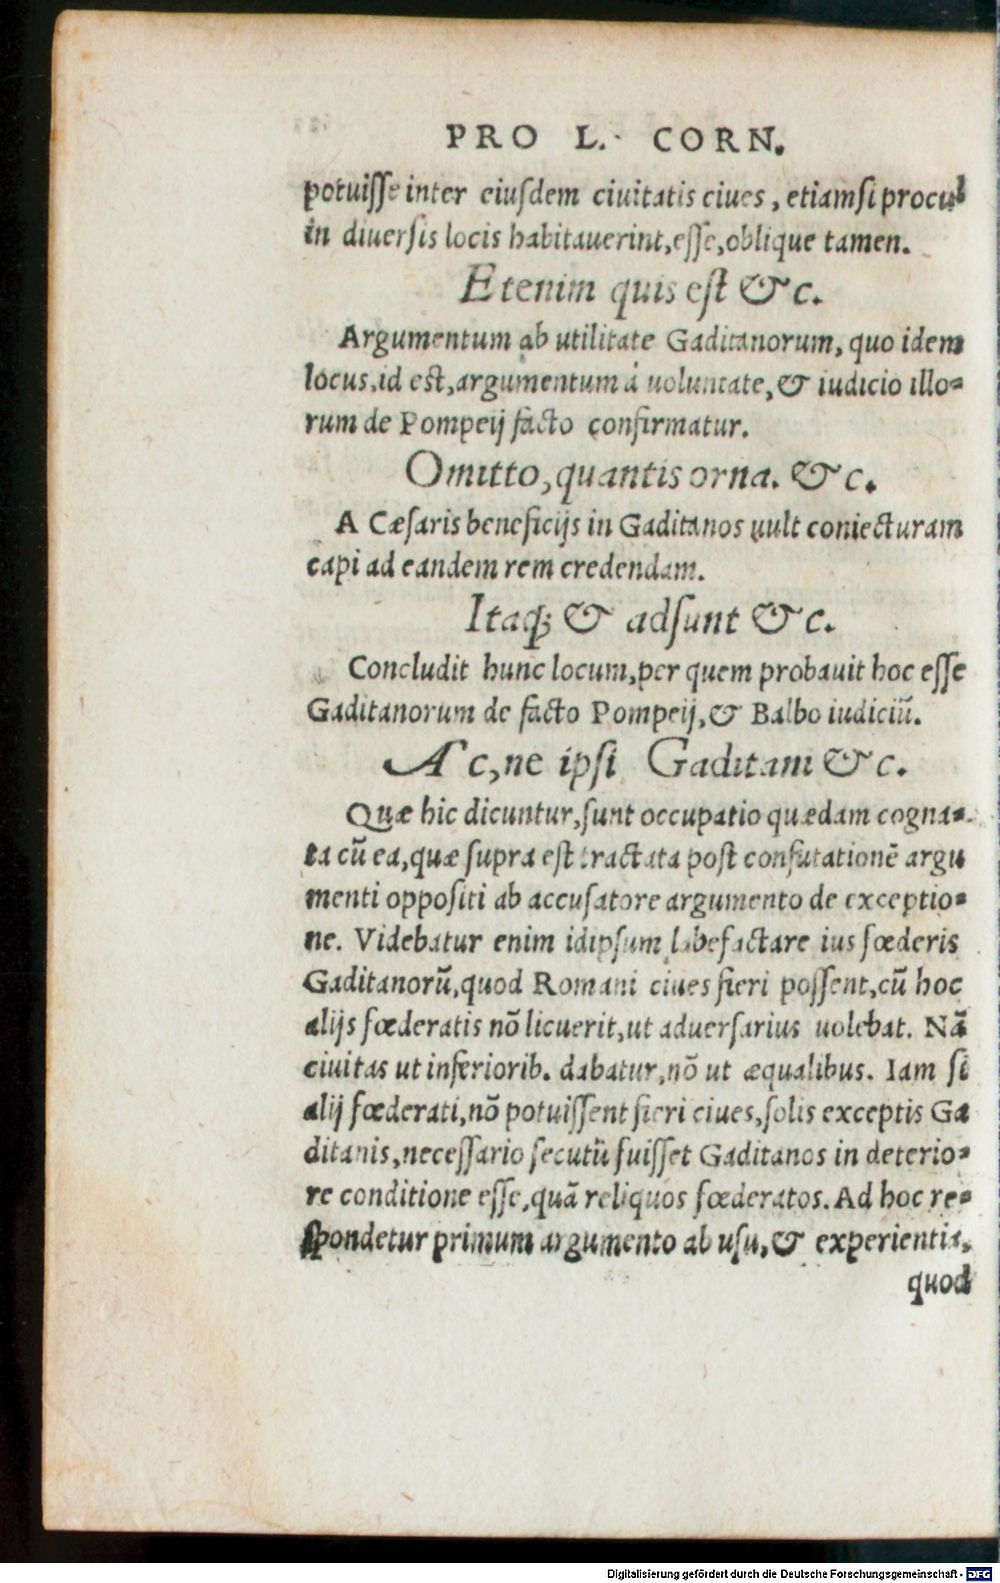 PRO L. CORN.
potuiſſe inter eiuſdem ciuitatis ciues, etiamſi procul
in diuerſis locis habitauerint, eſſe, oblique tamen.
Etenim quis eſt &c.
Argumentum ab utilitate Gaditanorum, quo idem
locus, id est, argumentum à uoluntate, & iudicio illo-
rum de Pompeij facto confirmatur.
Omitto, quantis orna. &c.
A Cæſaris beneficijs in Gaditanos uult coniecturam
capi ad eandem rem credendam.
Itaq; & adſunt &c.
Concludit hunc locum, per quem probauit hoc eſſe
Gaditanorum de facto Pompeij, & Balbo iudiciū.
Ac, ne ipſi Gaditani &c.
Quæ hic dicuntur, ſunt occupatio quædam cogna-
ta cū ea, quæ ſupra est tractata poſt confutationē argu
menti oppoſiti ab accuſatore argumento de exceptio-
ne. Videbatur enim idipſum labefactare ius fœderis
Gaditanorū, quod Romani ciues fieri poſſent, cū hoc
alijs fœderatis nō licuerit, ut aduerſarius uolebat. Nā
ciuitas ut inferiorib. dabatur, nō ut æqualibus. Iam ſi
alij fœderati, nō potuiſſent fieri ciues, ſolis exceptis Ga
ditanis, neceſſario ſecutū fuiſſet Gaditanos in deterio-
re conditione eſſe, quā reliquos fœderatos. Ad hoc re-
ſpondetur primum argumento ab uſu, & experientia,
quod
Digitalisierung gefördert durch die Deutsche Forschungsgemeinschaft - DFG